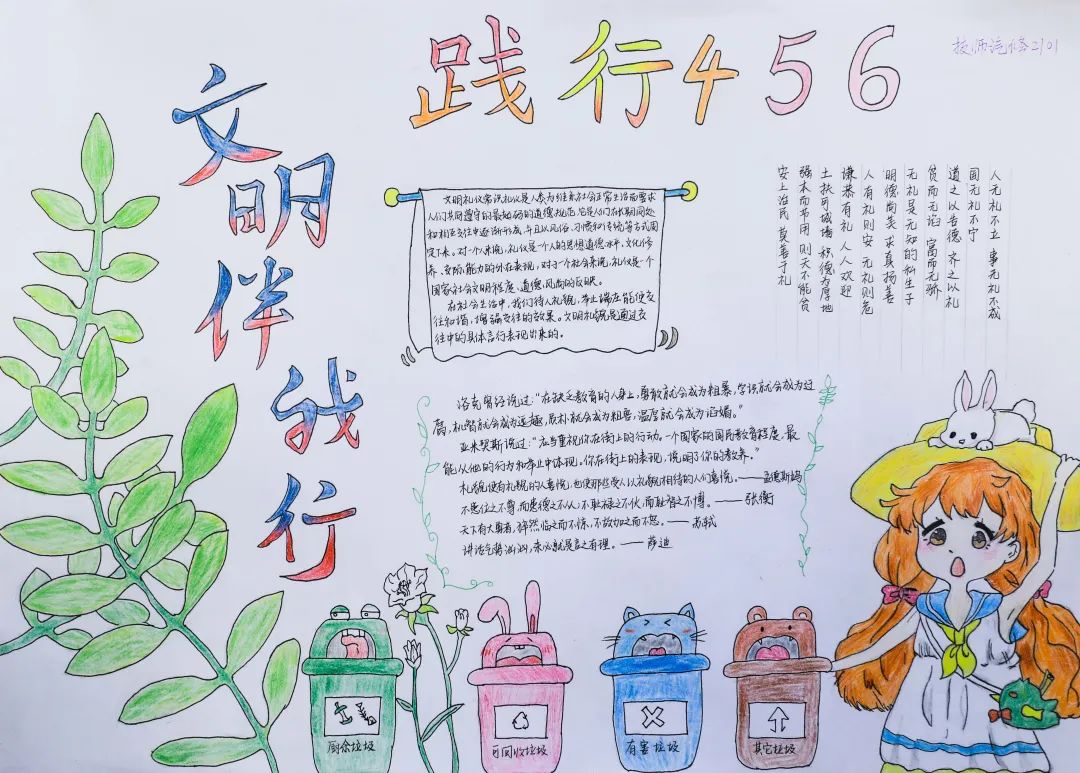 践行456
技师汽修2101
文明伴我行
文明礼仪常识礼仪是人参与维系社会正常生活而要求
人们共同遵守的最起码的道德规范,它是人们在长期共同处
和相互交往中逐渐形成,并且以风俗、习惯和传统等方式固
定下来。对一个人来说,礼仪是一个人的思想道德水平、文化修
养、交际能力的外在表现,对于一个社会来说,礼仪是一个
国家社会文明程度、道德风尚的反映。
在社会生活中,我们待人礼貌,举止端庄能使交
往和谐,增强交往的效果。文明礼貌是通过交
往中的具体言行表现出来的。
人无礼不立 事无礼不成
国无礼不宁
道之以告德 齐之以礼
贫而无谄 富而无骄
无礼是无知的私生子
明德尚美 求真扬善
人有礼则安 无礼则危
谦恭有礼 人人欢迎
土扶可城墙 积德为厚地
强本而节用 则天不能贫
安上治民 莫善于礼
洛克曾经说过:“在缺乏教育的人身上,勇敢就会成为粗暴,学识就会成为迂
腐,机智就会成为逗趣,质朴就会成为粗鲁,温厚就会成为谄媚。”
亚米契斯说过:“应当重视你在街上的行动。一个国家的国民教育程度,最
能从他的行为和举止中体现。你在街上的表现,说明了你的教养。”
礼貌使有礼貌的人喜悦,也使那些受人以礼貌相待的人们喜悦。——孟德斯鸠
不患位之不尊,而患德之不从;不耻禄之不伙,而耻智之不博。——张衡
天下有大勇者,猝然临之而不惊,不故加之而不怒。——苏轼
讲话气势汹汹,未必就是言之有理。——萨迪
厨余垃圾
可回收垃圾
有害垃圾
其它垃圾